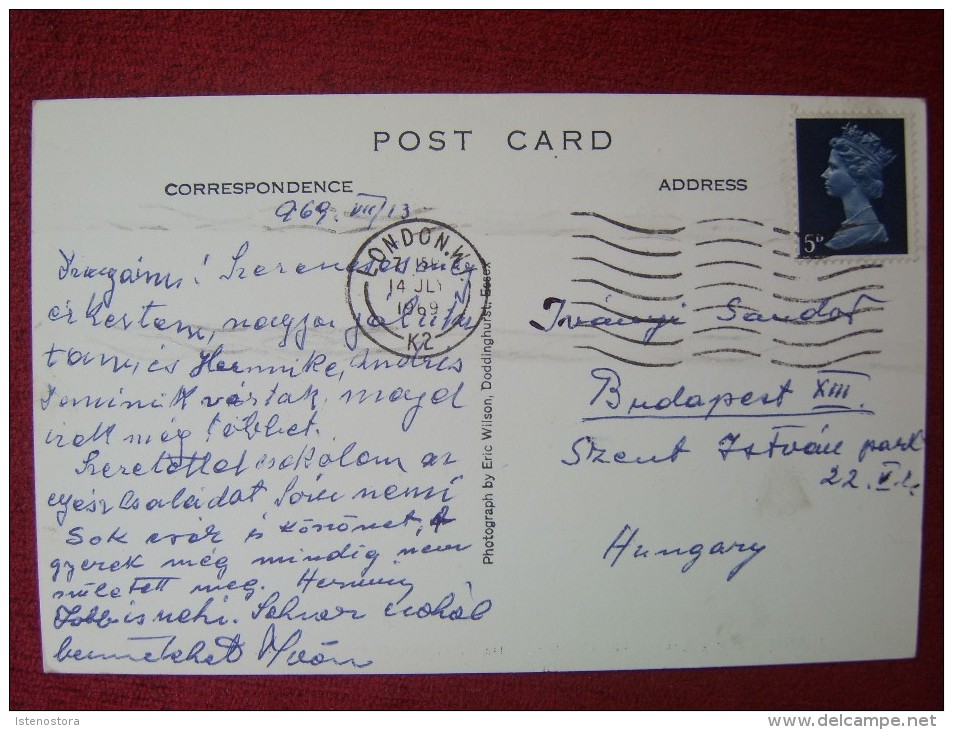 POST CARD
CORRESPONDENCE
ADDRESS
969. VII/13
LONDON.W.
14 JLY
1969
K2
5D
Drágám! Szerencsésen meg
érkeztem, nagyon
tam, és Herminke, András
Dominik vártak, majd
írok még többet.
Szeretettel csokolom az
egész családot
Sok csók és köszönet, A
gyerek még mindig nem
született meg. Herminz
Jobb is neki. Sokszor csókol
benneteket
Photograph by Eric Wilson, Doddinghurst, Essex
Iványi Sandor
Budapest XIII.
Szent István park
22.
Hungary
Istenostora
delcampe.net